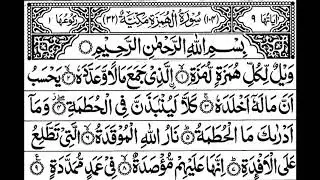 اٰیاتہا ٩ (١٠٤) سُوْرَةُ الْهُمَزَةِ مَكِّيَّةٌ (٣٢) رکوعہا ١
بِسْمِ اللّٰهِ الرَّحْمٰنِ الرَّحِيْمِ
وَيْلٌ لِّكُلِّ هُمَزَةٍ لُّمَزَةِ ۙ الَّذِيْ جَمَعَ مَالًا وَّعَدَّدَهٗ ۙ يَحْسَبُ
اَنَّ مَالَهٗٓ اَخْلَدَهٗ ۚ كَلَّا لَيُنْۢبَذَنَّ فِي الْحُطَمَةِ ۖ وَمَآ
اَدْرٰىكَ مَا الْحُطَمَةُ ؕ نَارُ اللّٰهِ الْمُوْقَدَةُ ۙ الَّتِيْ تَطَّلِعُ
عَلَى الْاَفْـِٕدَةِ ؕ اِنَّهَا عَلَيْهِمْ مُّؤْصَدَةٌ ۙ ٨ فِيْ عَمَدٍ مُّمَدَّدَةٍ ٩